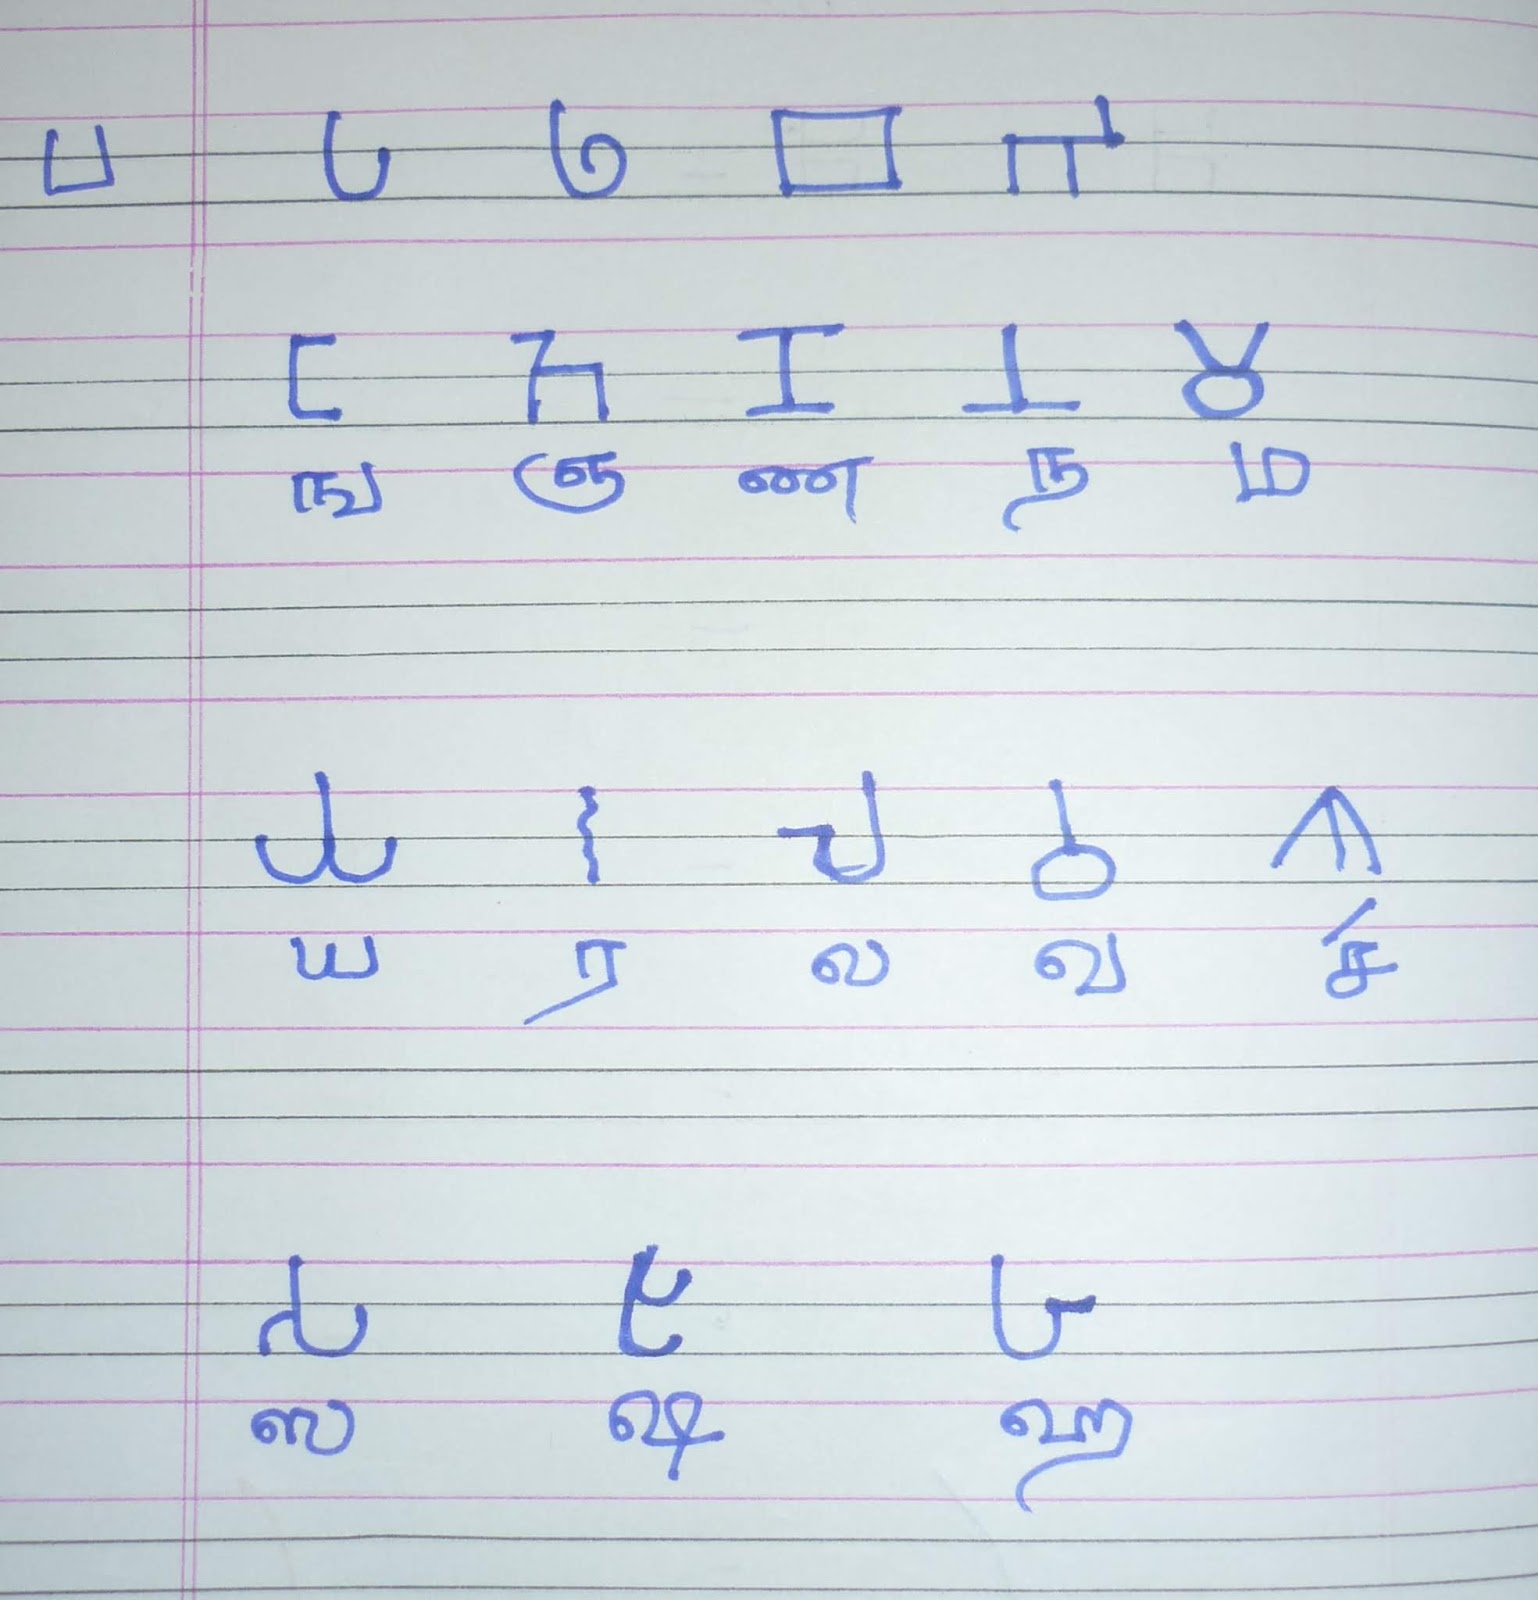 ப 𑀧 𑀨 𑀩 𑀪
𑀗 𑀜 𑀡 𑀦 𑀫
ங ஞ ண ந ம
𑀬 𑀭 𑀮 𑀯 𑀰
ய ர ல வ ச́
𑀲 𑀱 𑀳
ஸ ஷ ஹ